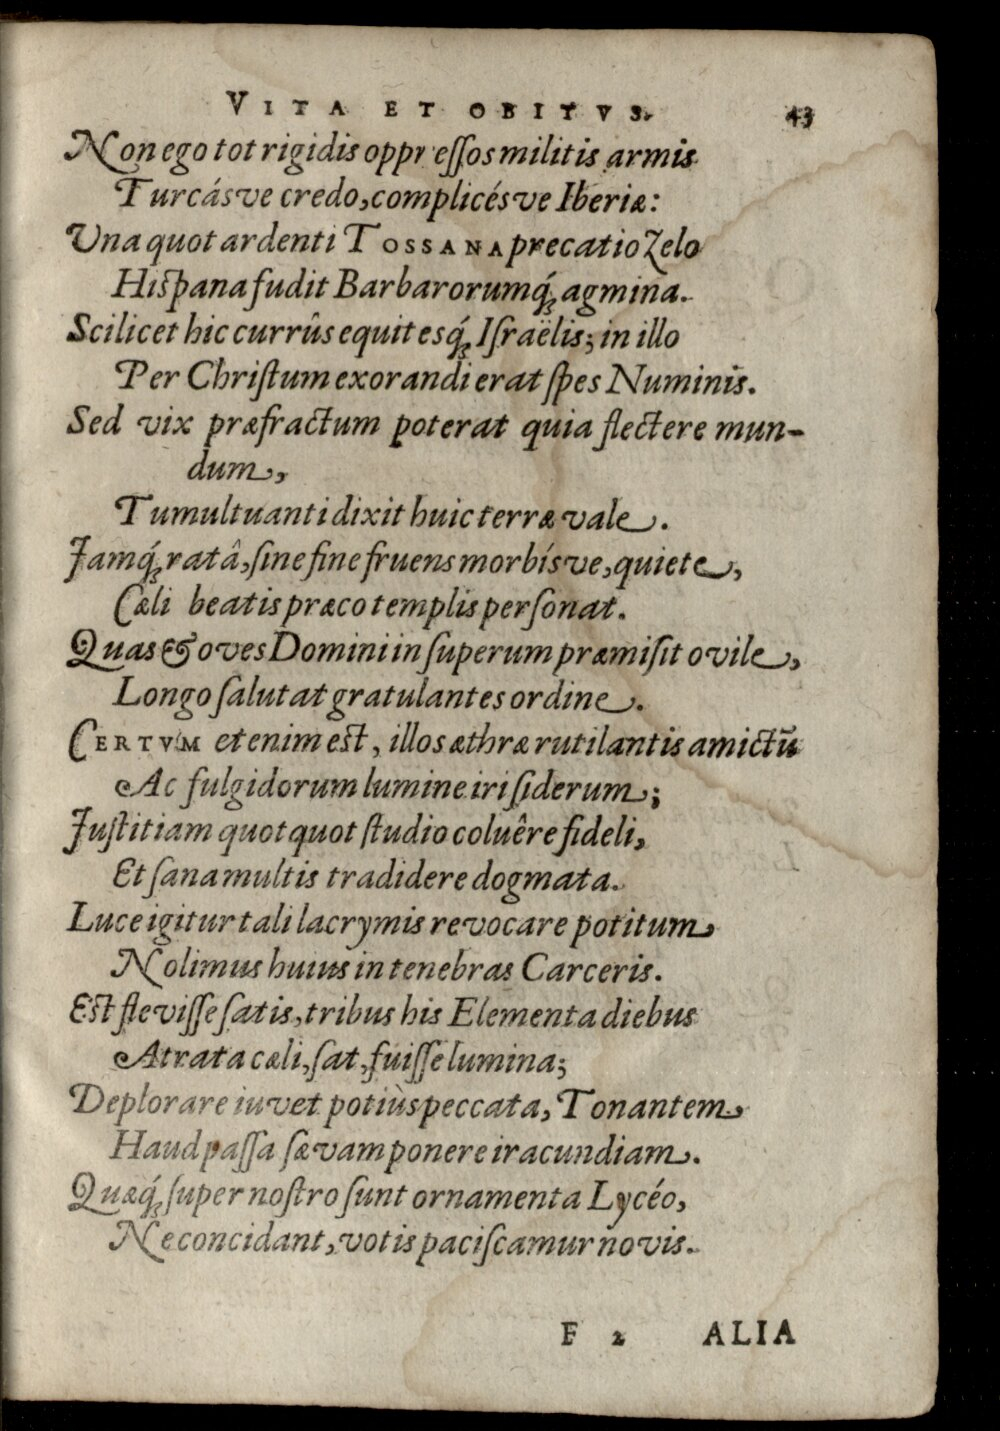 VITA ET OBITVS. 43
Non ego tot rigidis oppressos militis armis
Turcásve credo, complicésve Iberiæ:
Una quot ardenti TOSSANA precatio Zelo
Hispana fudit Barbarorumq́; agmina.
Scilicet hic currûs equitesq́; Iſraëlis; in illo
Per Chriſtum exorandi erat ſpes Numinis.
Sed vix præfractum poterat quia flectere mun-
dum,
Tumultuanti dixit huic terræ vale.
Jamq́; ratâ, ſine fine fruens morbísve, quiete,
Cæli beatis præco templis perſonat.
Quas & oves Domini in ſuperum præmiſit ovile,
Longo ſalutat gratulantes ordine.
CERTVM etenim eſt, illos æthræ rutilantis amictū
Ac fulgidorum lumine iri ſiderum;
Juſtitiam quotquot ſtudio coluêre fideli,
Et ſana multis tradidere dogmata.
Luce igitur tali lacrymis revocare potitum
Nolimus huius in tenebras Carceris.
Eſt fleviſſe ſatis, tribus his Elementa diebus
Atrata cæli, ſat, fuiſſe lumina;
Deplorare iuvet potiùs peccata, Tonantem
Haud paſſa ſævam ponere iracundiam.
Quæq́; ſuper noſtro ſunt ornamenta Lycéo,
Ne concidant, votis paciſcamur novis.
F 2 ALIA